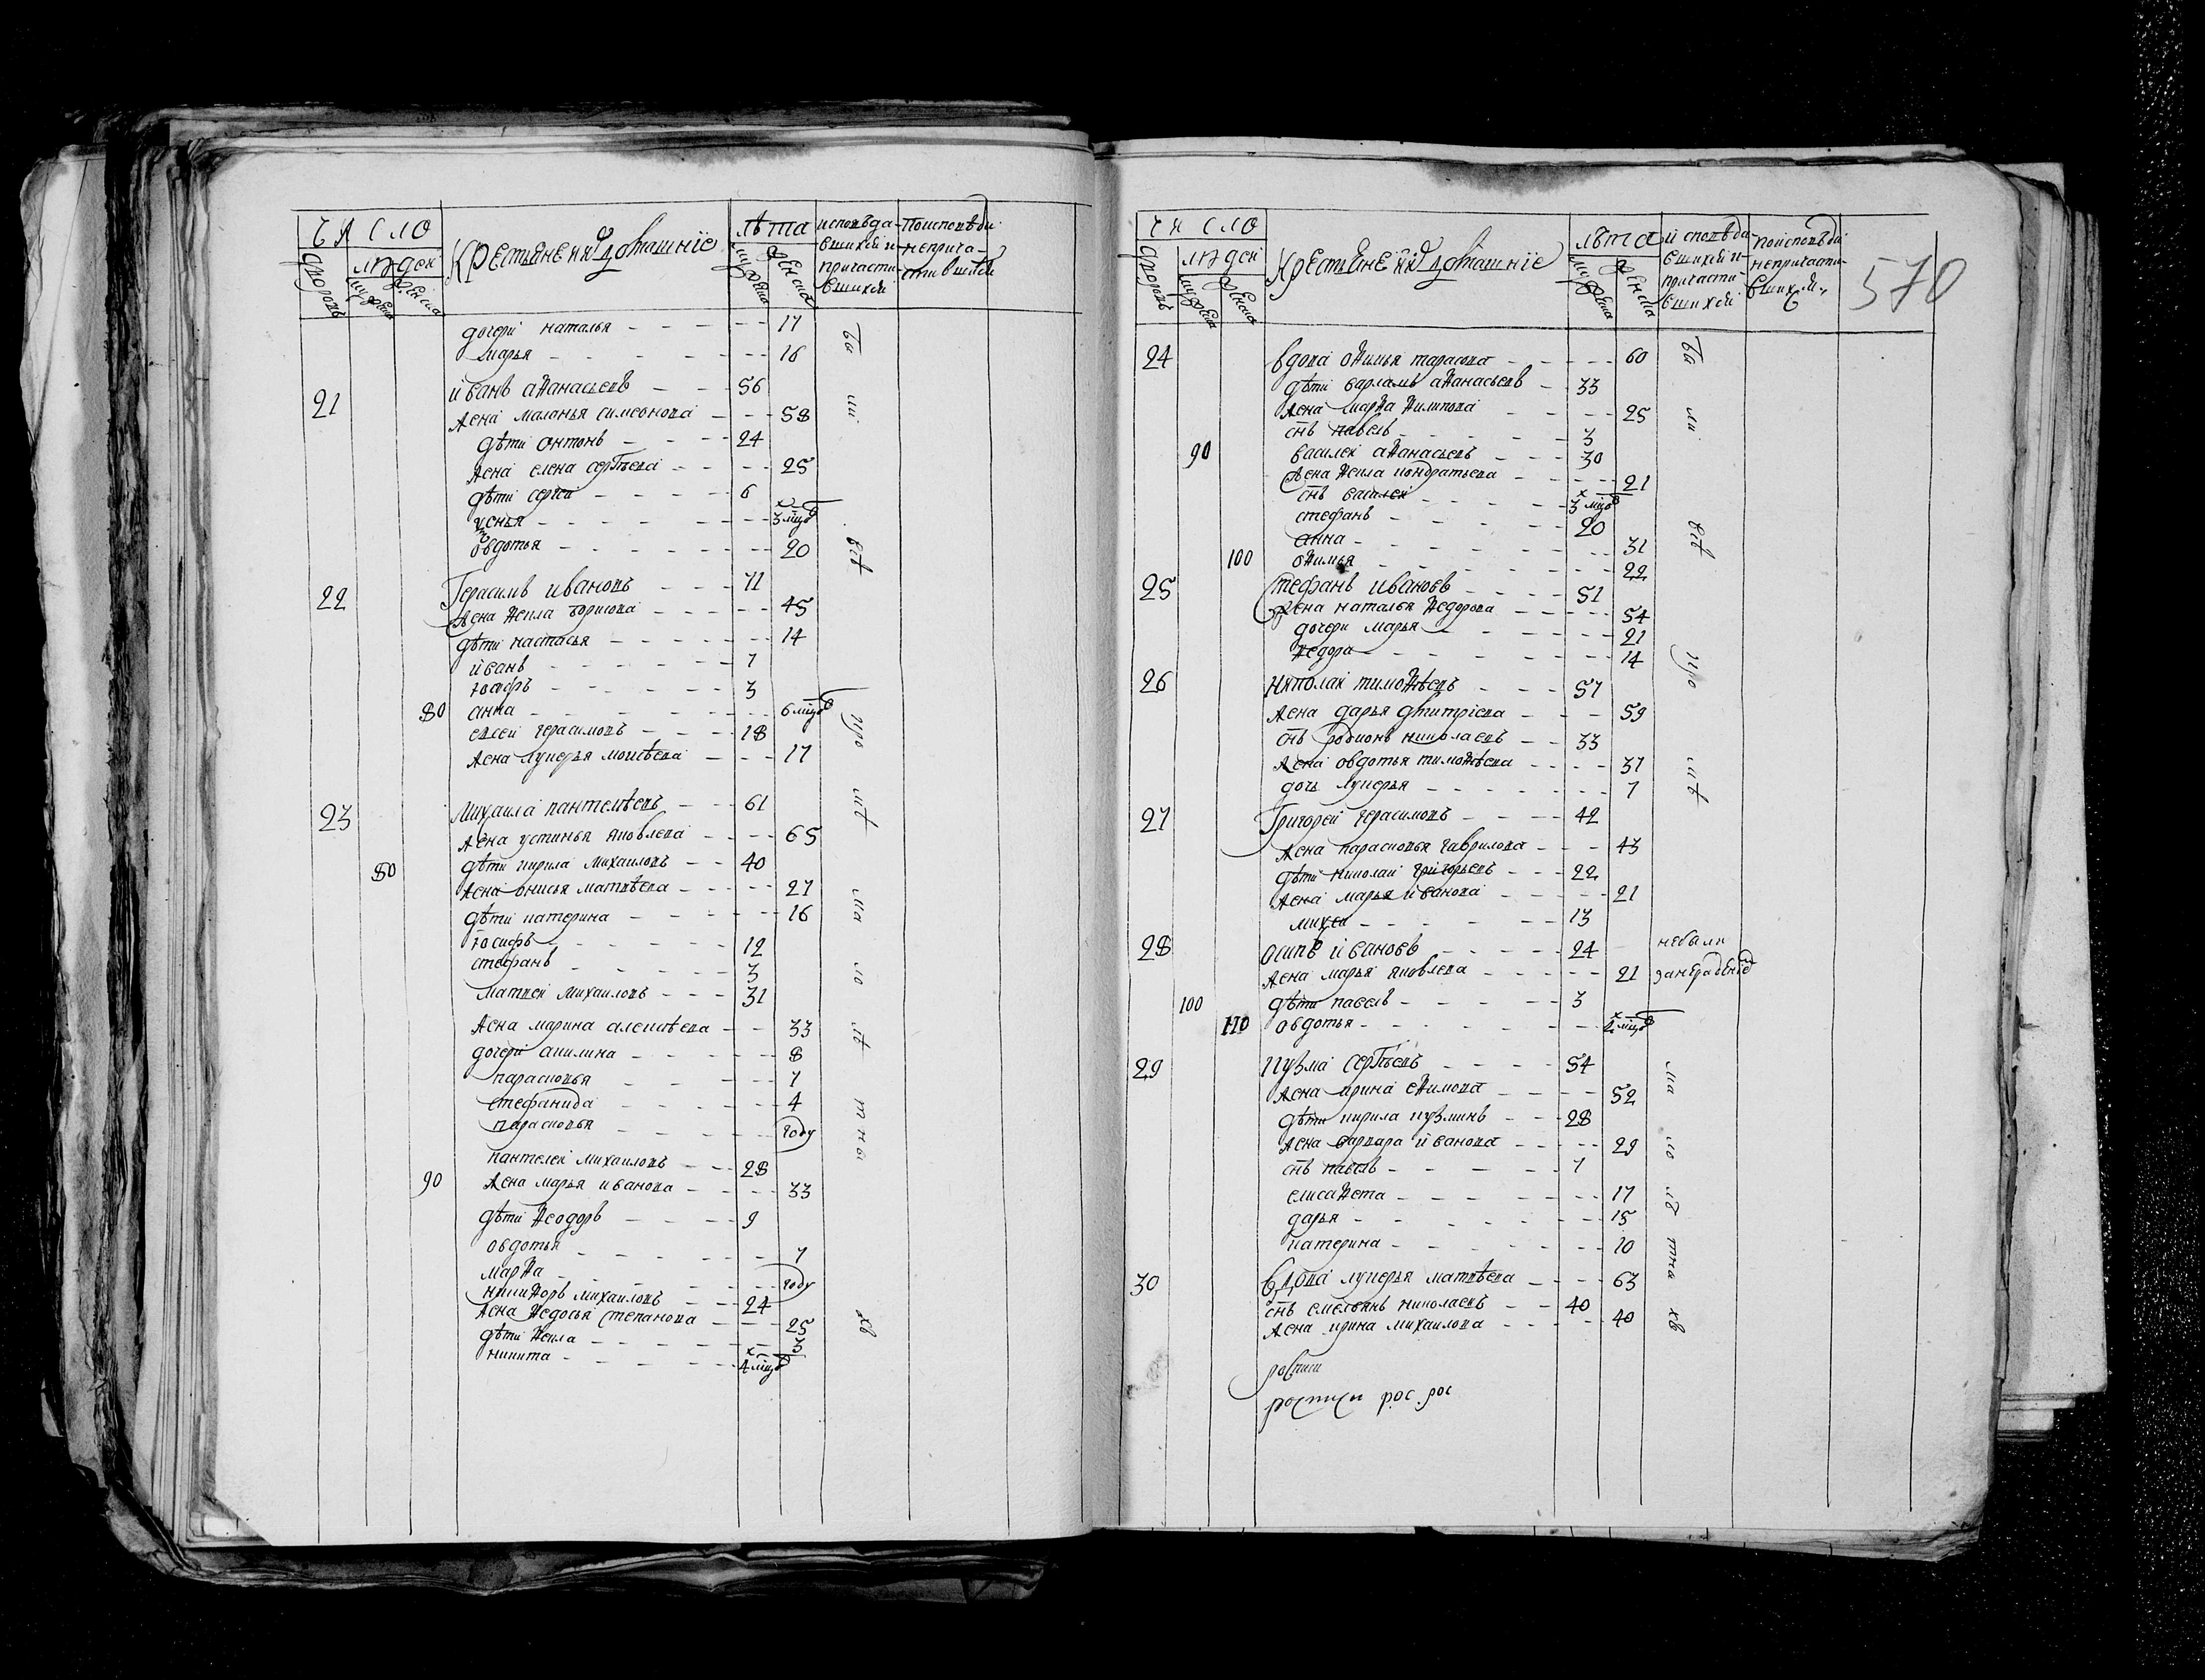 число
людей
дворовъ
мужеска
женска
крестьяне и их домашніе
лѣта
мужеска
женска
исповѣда-
вшихся и
причасти-
вшихся
по исповѣди
неприча-
стившихся
дочери наталья 17
марья 16
21 иванъ аѳанасьевъ 56
жена маланья симеонова 58
дѣти онтонъ 24
жена елена сергѣева 25
дѣти сергеи 6
3 мцов
овдотья 20
22 Герасимъ ивановъ 71
жена ѳекла борисова 45
дѣти настасья 14
иванъ 7
3
80 анна 6 мцов
евсеи герасимовъ 18
жена лукерья моисѣева 17
23 михаила пантелѣевъ 61
жена устинья яковлева 65
80 дѣти кирила михаиловъ 40
жена онисья матвѣева 27
дѣти катерина 16
иосифъ 12
стефанъ 3
матвеи михаиловъ 31
жена марина алексѣева 33
дочери акилина 8
парасковья 7
стефанида 4
парасковья году
пантелеи михаиловъ 28
90 жена марья иванова 33
дѣти ѳеодоръ 9
овдотья 7
марѳа году
никиѳоръ михаиловъ 24
жена ѳедосья степанова 25
дѣти ѳекла 3
никита 4 мцов
570
число
людей
дворовъ
мужеска
женска
крестьяне и их домашніе
лѣта
мужеска
женска
исповѣда-
вшихся и
причасти-
вшихся
по исповѣди
непричасти-
вшихся
24 вдова оѳимья тарасова 60
дѣти варламъ аѳанасьевъ 33
жена марѳа ѳилипова 25
снъ павелъ 3
90 василеи аѳанасьевъ 30
жена ѳекла кондратьева 21
снъ василеи 3 мцов
стефанъ 20
анна 31
100 оѳимья 22
25 стефанъ ивановъ 51
жена наталья ѳедорова 54
дочери марья 21
ѳедора 14
26 николаи тимоѳѣевъ 57
жена дарья дмитріева 59
снъ родионъ николаевъ 33
жена овдотья тимоѳѣева 37
дочь лукерья 7
27 Григореи герасимовъ 42
жена парасковья гаврилова 43
дѣти николаи григорьевъ 22
жена марья иванова 21
михеи 13
28 осипъ ивановъ 24 небыли
жена марья яковлева 21 занерадѣніе
100 дѣти павелъ 3
110 овдотья 4 мцов
29 кузма сергѣевъ 54
жена ирина еѳимова 52
дѣти кирила кузминъ 28
жена варвара иванова 29
снъ павелъ 7
елисавета 17
дарья 15
катерина 10
30 вдова лукерья матвѣева 63
снъ емельянъ николаевъ 40
жена ирина михаилова 40
росписи
росписи рос. рос